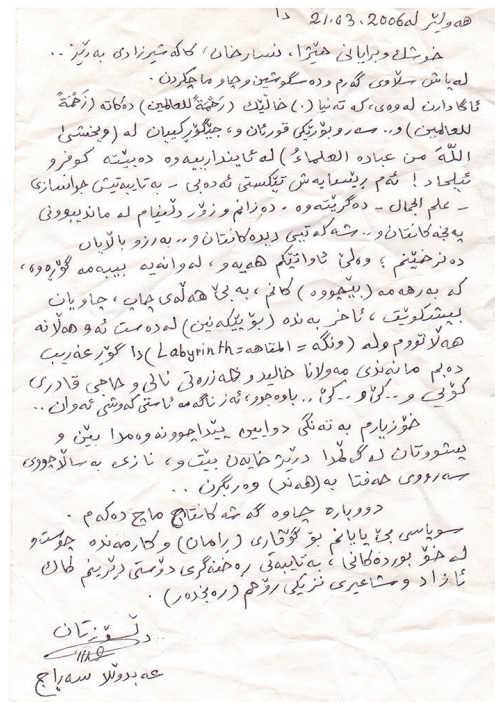 هەولێر لە 21.03.2006 دا
خوشك و برایانی خێزا، نسارخان، کاکە شێرزادی بەڕێز..
لەپاش سڵاوی گەرم و دەستگوشین و چاو ماچکردن.
ئاگادارن لەوەی، کە تەنیا (.) خاڵێك (رَحْمَةً للعالمين) دەکاتە (زَحْمَةً
للعالمين) و.. سەر و بۆرێکی قورئان و، جێگۆڕکێیان لە (ويخشىٰ
اللّهَ من عباده العلماءُ) لە ئایندارییەوە دەبێتە کوفرو
ئیلحاد! ئەم ڕێسایەش تێکستی ئەدەبی - بە تایبەتیش جوانسازی
- علم الجمال - دەگرێتەوە. دەزانم و زۆر دڵنیام لە ماندیبوونی
پەنجەکانتان و.. شەکەتیی دیدەکانتان و.. بەرزو باڵایان
دەنرخێنم؛ وەلێ ئاواتێکم هەیە و، لەوانەیە ببیەمە گۆڕەوە،
کە بەرهەمە (بێچووە) کانم، بە بێ هەڵەی چاپ، چاویان
بپشکوێت، ئاخر بەندە (بۆ پێکەنین) لە دەست ئەو هەڵانە
هەڵاتووم ولە (ونگە = المتاهة = Labyrinth) دا گۆڕ غەریب
دەبم مانەندی مەولانا خالید و حەزرەتی نالی و حاجی قادری
کۆیی و.. کێ و.. کێ.. باوەجوو، ئەز ناگەمە ئاستی کەوشی ئەوان..
خۆزیارم بە تەنگی دوایین پێداچوونەوەمدا بێن و
پیشووتان لە گەڵمدا درێژخایەن بێت و، نازی بە ساڵاچووی
سەرووی حەفتا بە (هەند) وەربگرن..
دووبارە چاوە گەشەکانتان ماچ دەکەم.
سوپاسی بێ پایانم بۆ گۆڤاری (ڕامان) و کارمەندە چوست و
لە خۆ بوردەکانی، بە تایبەتی ڕەخنەگری دۆستی دێرینم کاك
ئازاد و شاعیری نزیکی ڕۆحم (ڕەنجدەر).
دڵسۆزتان
عەبدوڵلا سەڕاج